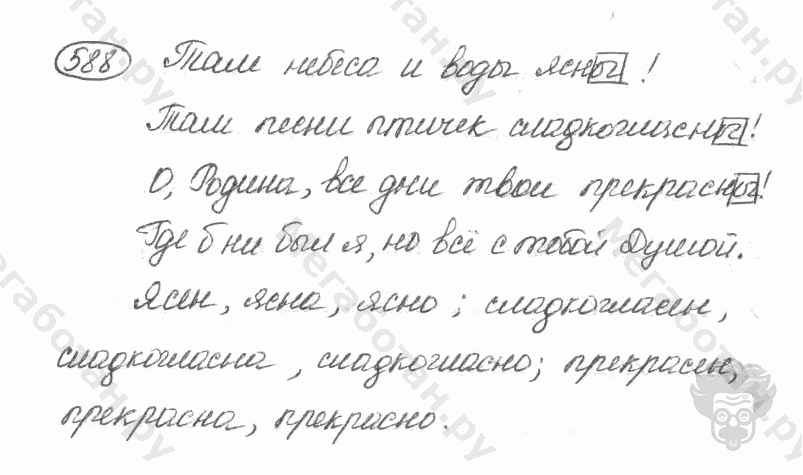 588 Там небеса и воды ясны!
Там песни птичек сладкогласны!
О, Родина, все дни твои прекрасны!
Где б ни был я, но всё с тобой Душой.
Ясен, ясна, ясно; сладкогласен,
сладкогласна, сладкогласно; прекрасен,
прекрасна, прекрасно.
Мегаботан.ру